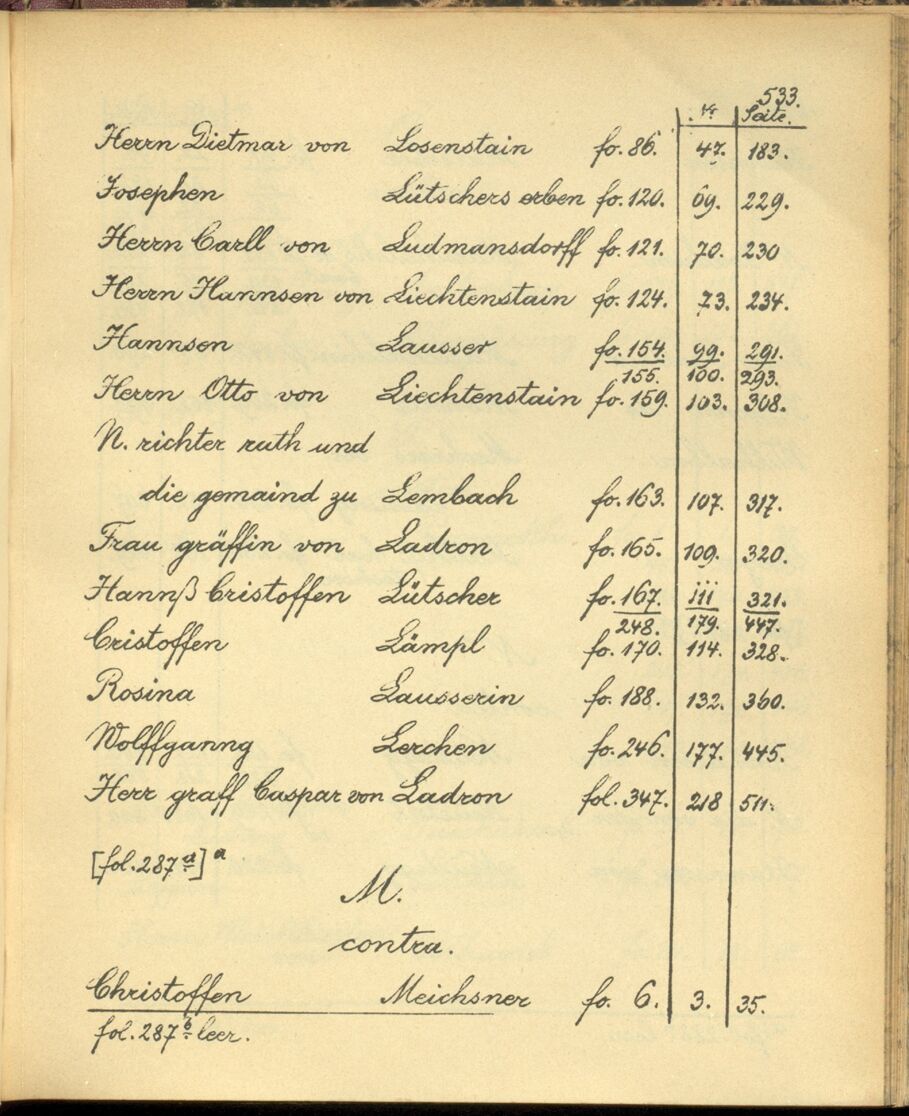 533.
Nr Seite.
Herrn Dietmar von Losenstain fo. 86. 47. 183.
Josephen Lütschers erben fo. 120. 69. 229.
Herrn Carll von Ludmansdorff fo. 121. 70. 230
Herrn Hannsen von Liechtenstain fo. 124. 73. 234.
Hannsen Lausser fo. 154. 99. 291.
155. 100. 293.
Herrn Otto von Liechtenstain fo. 159. 103. 308.
N. richter rath und
die gemaind zu Lembach fo. 163. 107. 317.
Frau gräffin von Ladron fo. 165. 109. 320.
Hannß Cristoffen Lütscher fo. 167. 111 321.
248. 179. 447.
Cristoffen Lämpl fo. 170. 114. 328.
Rosina Lausserin fo. 188. 132. 360.
Wolffganng Lerchen fo. 246. 177. 445.
Herr graff Caspar von Ladron fol. 347. 218 511.
[fol. 287 a] a
M.
contra.
Christoffen Meichsner fo. 6. 3. 35.
fol. 287 b leer.